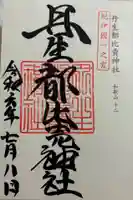 紀伊國一之宮
丹生都比賣神社
丹生都比売神社
令和元年七月八日